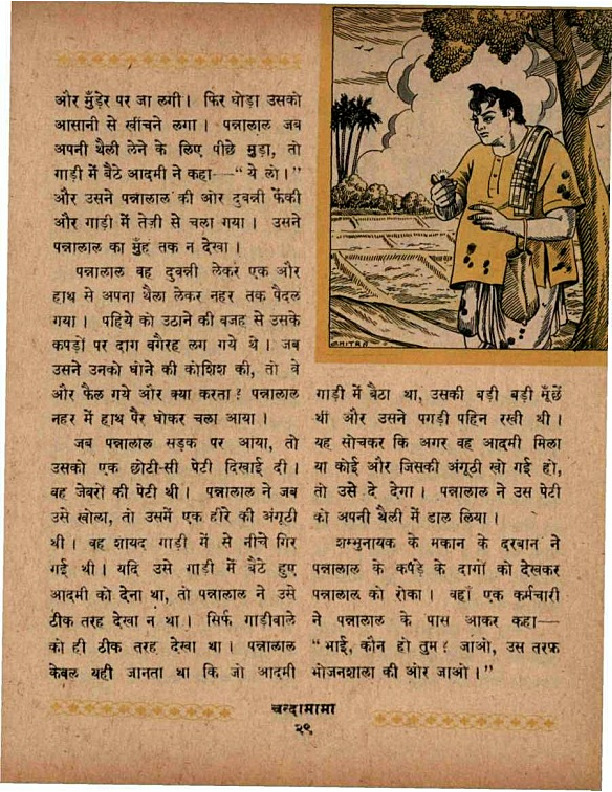 और मुँड़ेर पर जा लगी। फिर घोड़ा उसको
आसानी से खींचने लगा। पन्नालाल जब
अपनी थैली लेने के लिए पीछे मुड़ा, तो
गाड़ी में बैठे आदमी ने कहा—“ये लो।”
और उसने पन्नालाल की ओर दुवन्नी फेंकी
और गाड़ी में तेज़ी से चला गया। उसने
पन्नालाल का मुँह तक न देखा।
पन्नालाल वह दुवन्नी लेकर एक और
हाथ से अपना थैला लेकर नहर तक पैदल
गया। पहिये को उठाने की वजह से उसके
कपड़ों पर दाग वगैरह लग गये थे। जब
उसने उनको धोने की कोशिश की, तो वे
और फैल गये और क्या करता? पन्नालाल
नहर में हाथ पैर धोकर चला आया।
जब पन्नालाल सड़क पर आया, तो
उसको एक छोटी-सी पेटी दिखाई दी।
वह जेवरों की पेटी थी। पन्नालाल ने जब
उसे खोला, तो उसमें एक हीरे की अंगूठी
थी। वह शायद गाड़ी में से नीचे गिर
गई थी। यदि उसे गाड़ी में बैठे हुए
आदमी को देना था, तो पन्नालाल ने उसे
ठीक तरह देखा न था। सिर्फ गाड़ीवाले
को ही ठीक तरह देखा था। पन्नालाल
केवल यही जानता था कि जो आदमी
गाड़ी में बैठा था, उसकी बड़ी बड़ी मूँछें
थीं और उसने पगड़ी पहिन रखी थी।
यह सोचकर कि अगर वह आदमी मिला
या कोई और जिसकी अंगूठी खो गई हो,
तो उसे दे देगा। पन्नालाल ने उस पेटी
को अपनी थैली में डाल लिया।
शम्भुनायक के मकान के दरबान ने
पन्नालाल के कपड़े के दागों को देखकर
पन्नालाल को रोका। वहाँ एक कर्मचारी
ने पन्नालाल के पास आकर कहा—
“भाई, कौन हो तुम? जाओ, उस तरफ़
भोजनशाला की ओर जाओ।”
चन्दामामा
२९